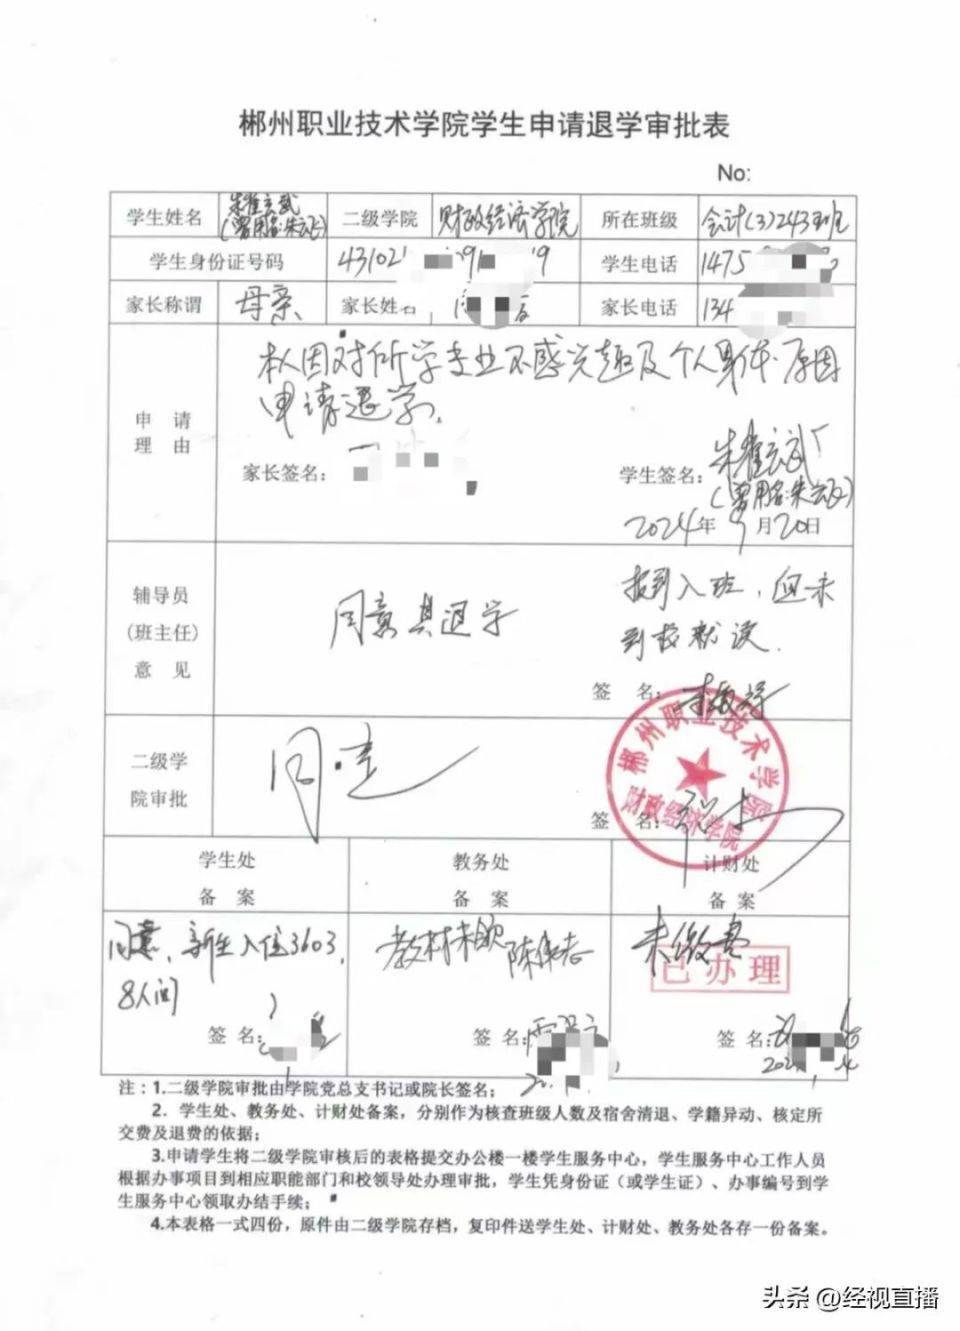 郴州职业技术学院学生申请退学审批表
No:
学生姓名 朱雀玄武 (曾用名:朱云飞) 二级学院 财政经济学院 所在班级 会计(3)243班
学生身份证号码 43102 9 9 学生电话 1475
家长称谓 母亲 家长姓名 家长电话 134
申请理由
本人因对所学专业不感兴趣及个人身体原因
申请退学。
家长签名: 学生签名: 朱雀玄武
(曾用名:朱云飞)
2024年9月20日
辅导员
(班主任)
意 见
同意其退学
报到入班,但未
到校就读.
签 名:
二级学
院审批
同意
签 名:
郴州职业技术学院
财政经济学院
学生处
备 案
教务处
备 案
计财处
备 案
同意、新生入住3603,
8人间
签 名:
教材未领
签 名:
未缴费
已办理
签 名:
注:1.二级学院审批由学院党总支书记或院长签名;
2. 学生处、教务处、计财处备案,分别作为核查班级人数及宿舍清退、学籍异动、核定所
交费及退费的依据;
3.申请学生将二级学院审核后的表格提交办公楼一楼学生服务中心,学生服务中心工作人员
根据办事项目到相应职能部门和校领导处办理审批,学生凭身份证(或学生证)、办事编号到学
生服务中心领取办结手续;
4.本表格一式四份,原件由二级学院存档,复印件送学生处、计财处、教务处各存一份备案。
头条 @经视直播